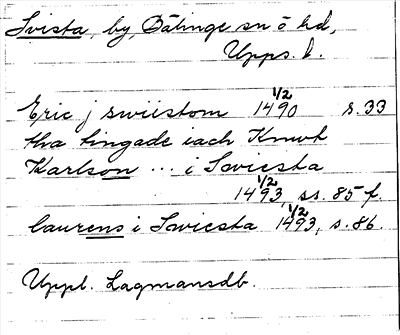 Svista, by, Bälinge sn o hd,
Upps. l.
Eric j swiistom 1490 1/2 s. 33
tha tingade iach Knwt
Karlson ... i Swicsta
1493 1/2, ss. 85 f.
laurens i Swicsta 1493 1/2, s. 86.
Uppl. Lagmansdb.